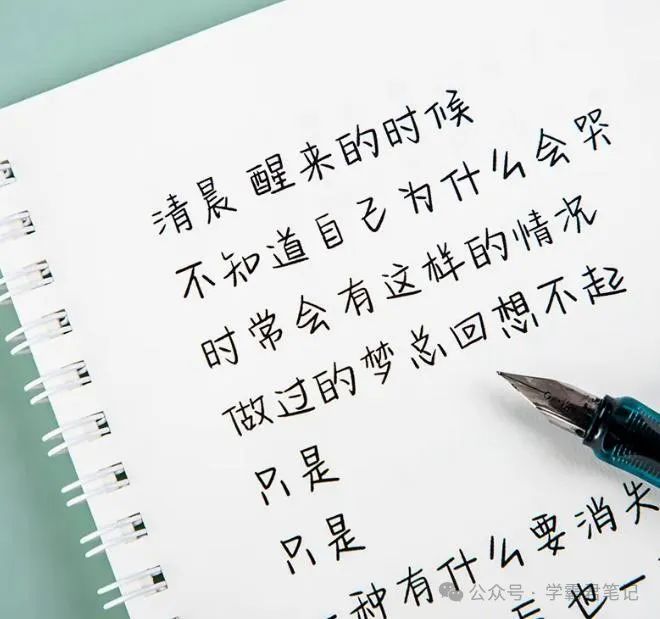 清晨 醒来的时候
不知道自己为什么会哭
时常会有这样的情况
做过的梦总回想不起
只是
只是
种有什么要消失
也一
公众号 · 学霸君笔记